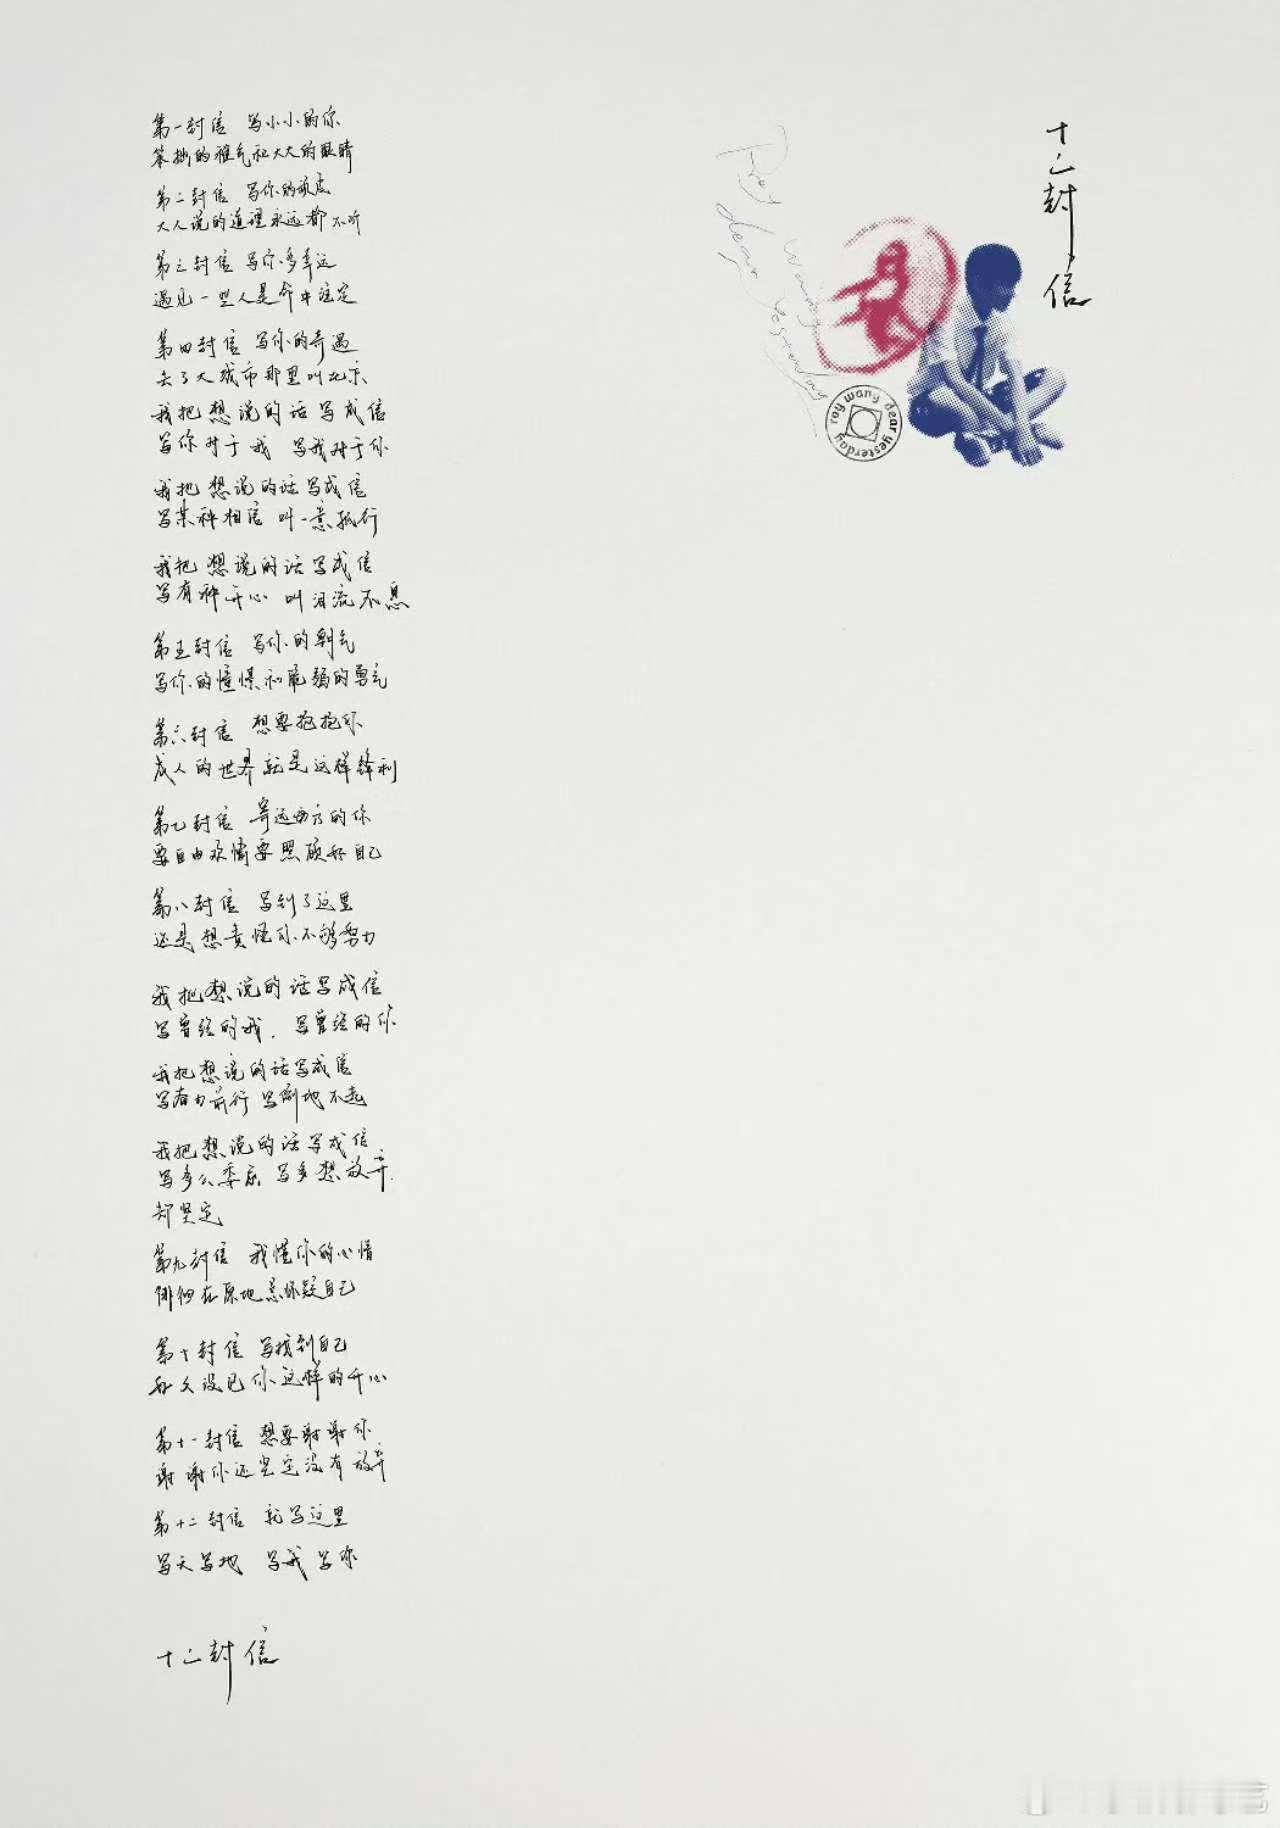 第一封信 写小小的你
笨拙的稚气和大大的眼睛
第二封信 写你的
大人说的道理永远都不听
第三封信 写你多幸运
遇见一些人是命中注定
第四封信 写你的奇遇
去了大城市那里叫北京
我把想说的话写成信
写你对于我 写我对于你
我把想说的话写成信
写某种相信 叫一意孤行
我把想说的话写成信
写有种开心 叫泪流不息
第五封信 写你的朝气
写你的憧憬和脆弱的勇气
第六封信 想要抱抱你
成人的世界就是这样锋利
第七封信 寄远方的你
要自由欢愉要照顾好自己
第八封信 写到了这里
还是想责怪你不够努力
我把想说的话写成信
写曾经的我. 写曾经的你
我把想说的话写成信
写奋力前行 写倒地不起
我把想说的话写成信
写多么委屈 写多想放弃.
却坚定
第九封信 我懂你的心情
徘徊在原地总怀疑自己
第十封信 写找到自己
好久没见你这样的开心
第十一封信 想要谢谢你
谢谢你还坚定没有放弃
第十二封信 就写这里
写天写地 写我写你
十二封信
十二封信
Roy Wang
dear yesterday
roy wang dear yesterday